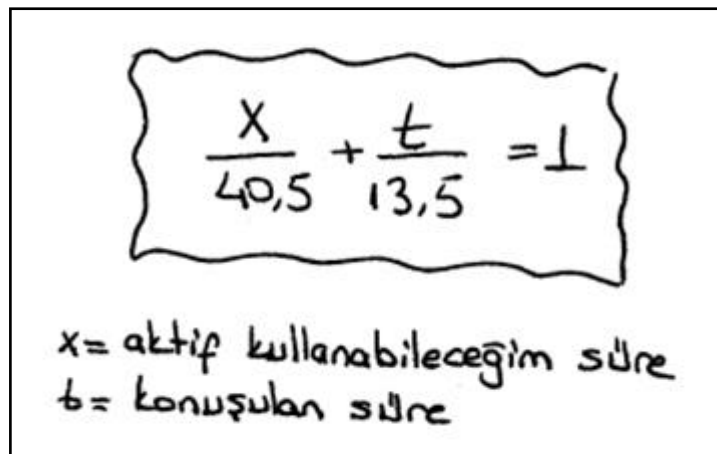 x/40,5 + t/13,5 = 1
x= aktif kullanabileceğim süre
t= konuşulan süre